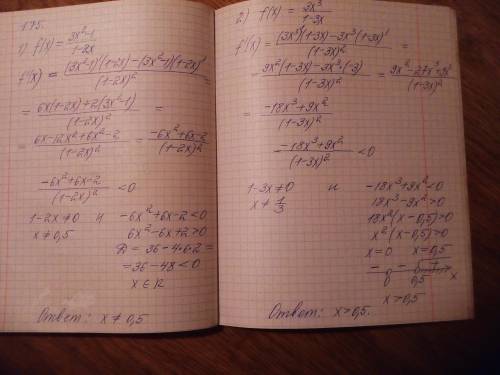 175.
1) f(x) = (3x²-1)/(1-2x)
f'(x) = ((3x²-1)'(1-2x) - (3x²-1)(1-2x)')/(1-2x)² =
= (6x(1-2x)+2(3x²-1))/(1-2x)² =
= (6x-12x²+6x²-2)/(1-2x)² = (-6x²+6x-2)/(1-2x)²
(-6x²+6x-2)/(1-2x)² < 0
1-2x≠0 и -6x²+6x-2<0
x≠0,5 6x²-6x+2>0
D = 36-4·6·2=
= 36-48<0
x∈R
Ответ: x≠0,5
2) f(x) = 3x³/(1-3x)
f'(x) = ((3x³)'(1-3x)-3x³(1-3x)')/(1-3x)² =
= (9x²(1-3x)-3x³·(-3))/(1-3x)² = (9x²-27x³+9x³)/(1-3x)²
= (-18x³+9x²)/(1-3x)²
(-18x³+9x²)/(1-3x)² < 0
1-3x≠0 и -18x³+9x²<0
x≠1/3 18x³-9x²>0
18x²(x-0,5)>0
x²(x-0,5)>0
x=0 x=0,5
- - +
0 0,5 x
x>0,5
Ответ: x>0,5.